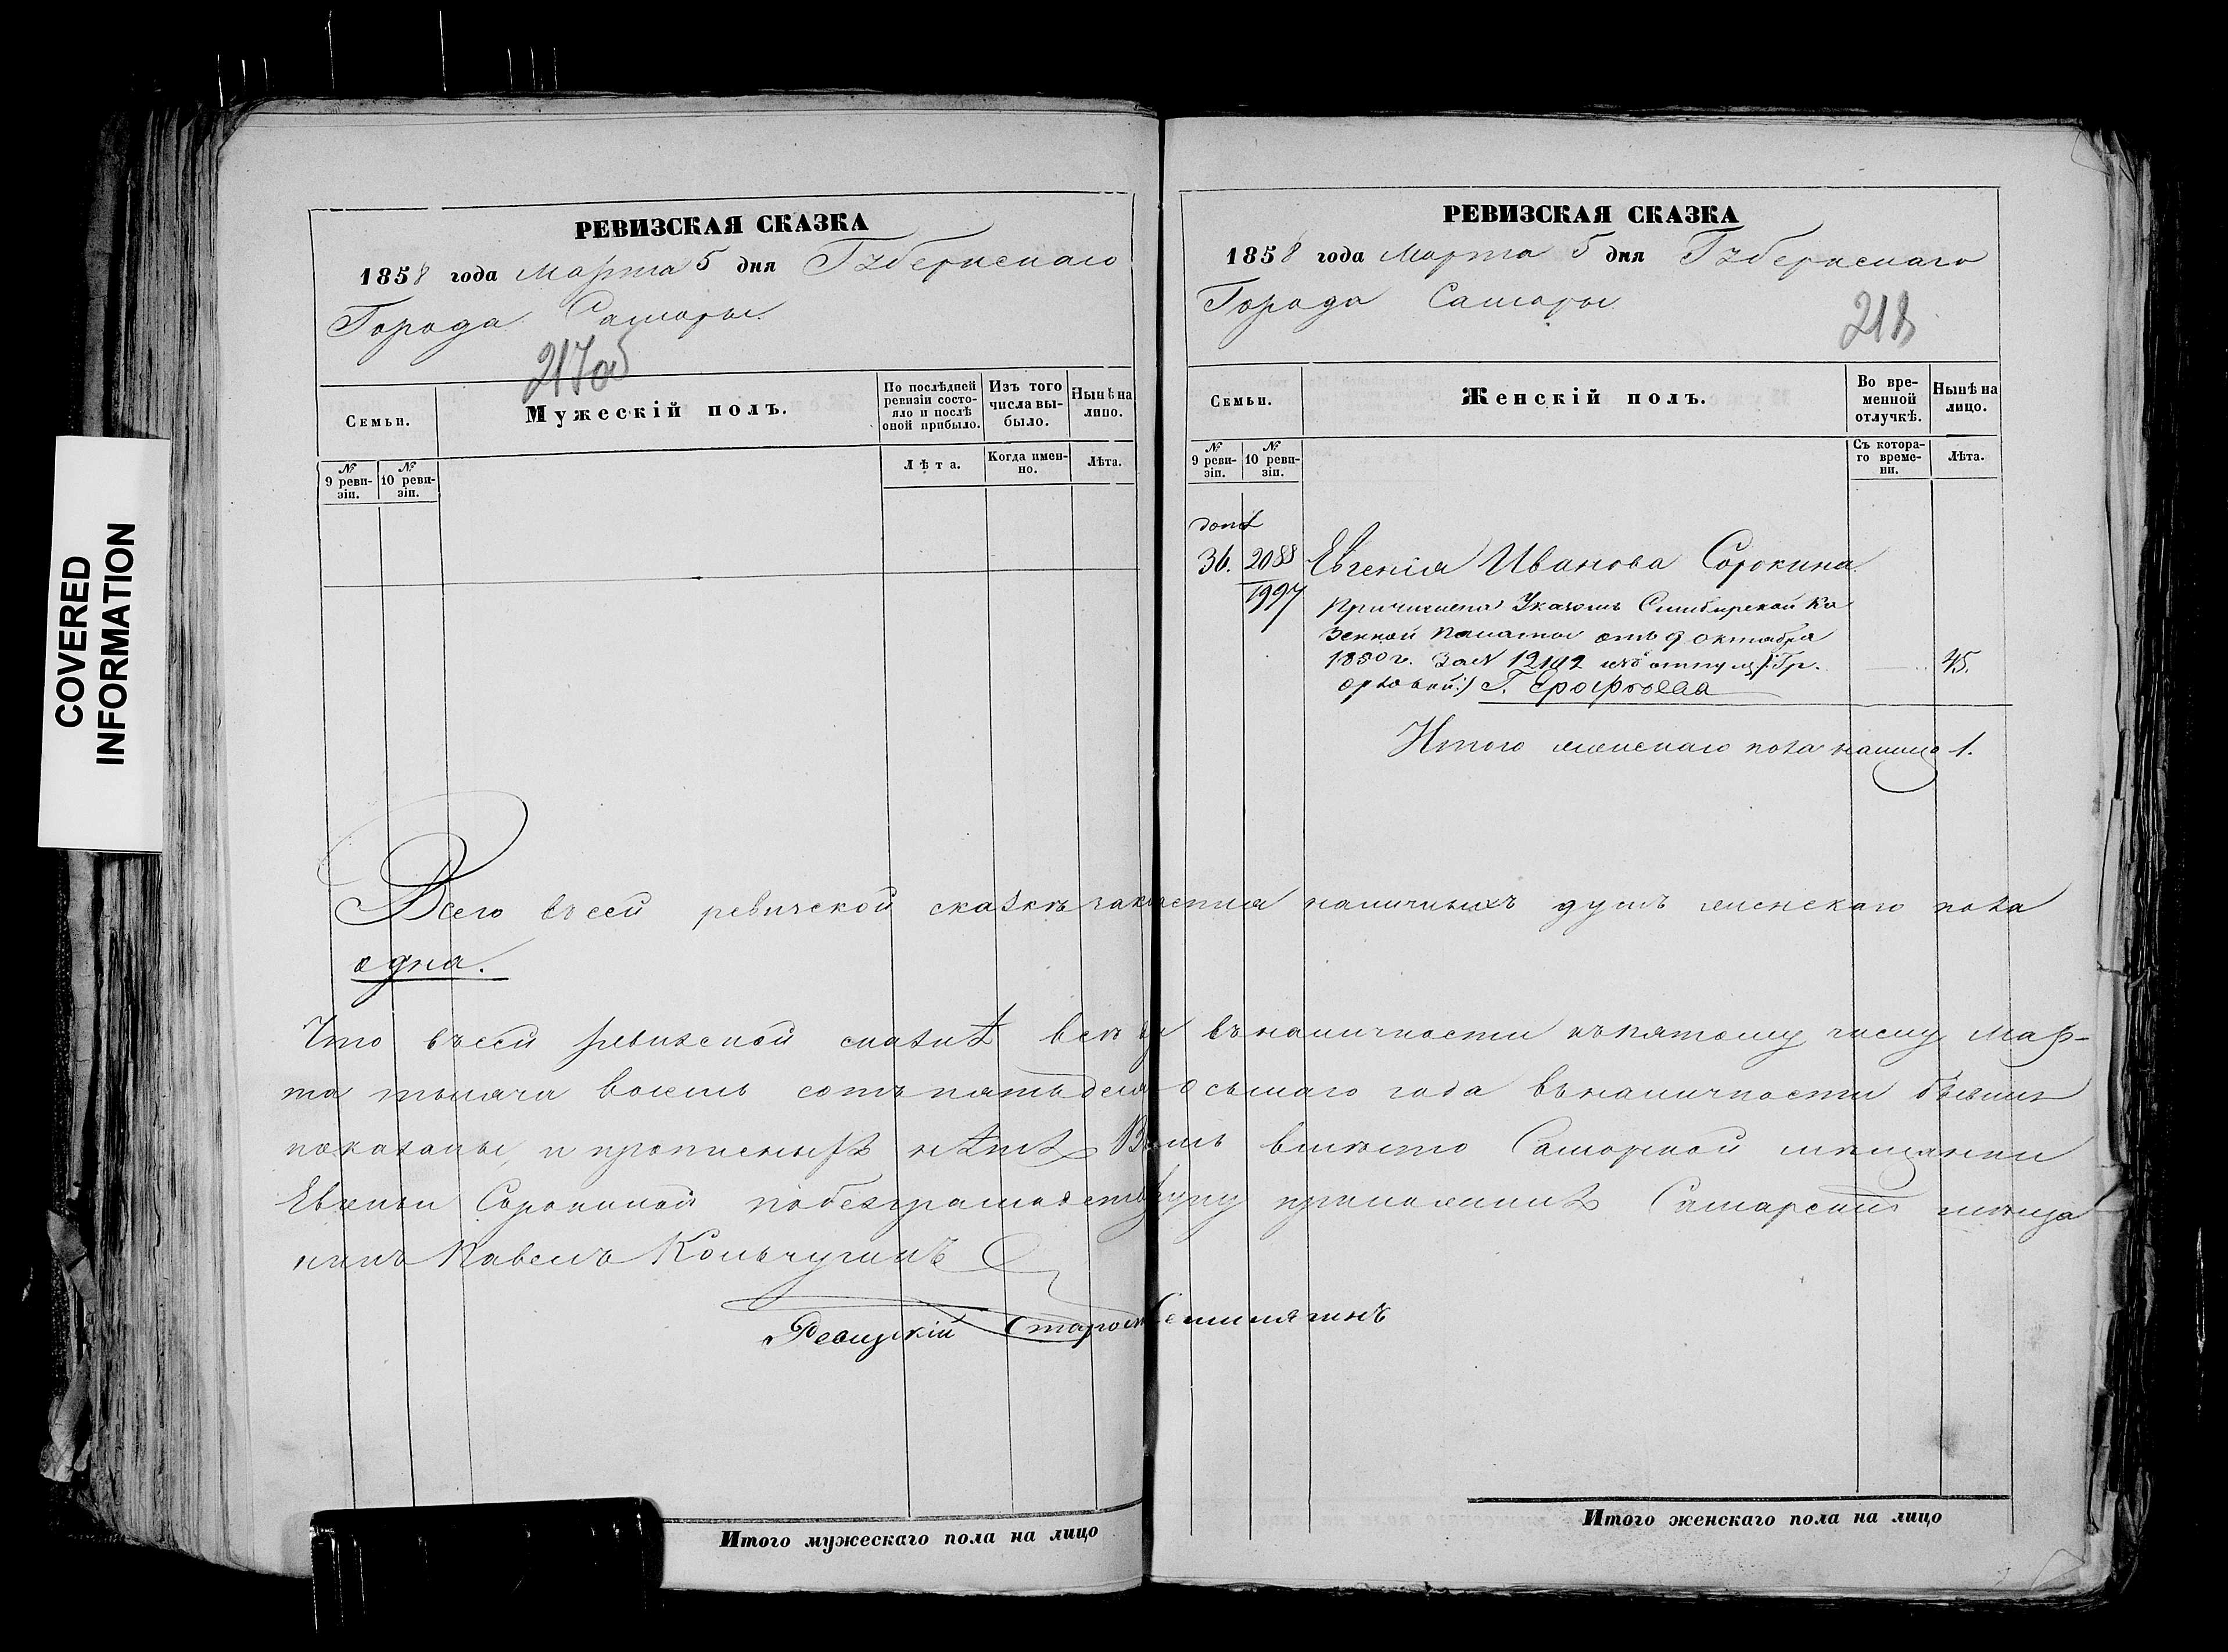 COVERED
INFORMATION
РЕВИЗСКАЯ СКАЗКА
1858 года Марта 5 дня Губернскаго
Города Самары
217об
Семьи.
Мужескій полъ.
По послѣдней ревизіи состояло и послѣ оной прибыло.
Изъ того числа выбыло.
Нынѣ на лицо.
№ 9 ревизіи.
№ 10 ревизіи.
Лѣта.
Когда именно.
Лѣта.
РЕВИЗСКАЯ СКАЗКА
1858 года Марта 5 дня Губернскаго
Города Самары
218
Семьи.
Женскій полъ.
Во временной отлучкѣ.
Нынѣ на лицо.
№ 9 ревизіи.
№ 10 ревизіи.
Съ котораго времени.
Лѣта.
36. 2088 Евгенія Иванова Сорокина
1997 Причислена Указомъ Симбирской Ка
зенной Палаты отъ 9 октября
1850 г. за № 12192 изъ отпущ /: Гр.
Орловой :/ 45.
Итого женскаго пола налицо 1.
Всего въ сей ревизской сказкѣ наличныхъ душъ женскаго пола
одна.
Что въ сей ревизской сказкѣ всѣ въ наличности къ пятому числу Мар-
та тысяча восемь сотъ пятьдесят осьмаго года въ наличности бывшіе
показаны, и прописныхъ нѣтъ Въ вмѣсто Самарской мѣщанки
Евгеніи Сорокиной по безграмотству руку приложилъ Самарскій мѣща
нинъ Павелъ Кольчугинъ
Ревизскій Староста
Итого мужескаго пола на лицо
Итого женскаго пола на лицо